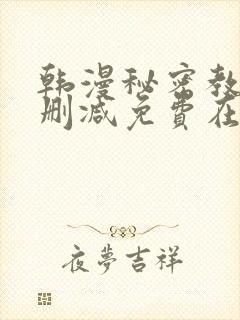 韩漫秘密教
删减免费在
夜夢吉祥